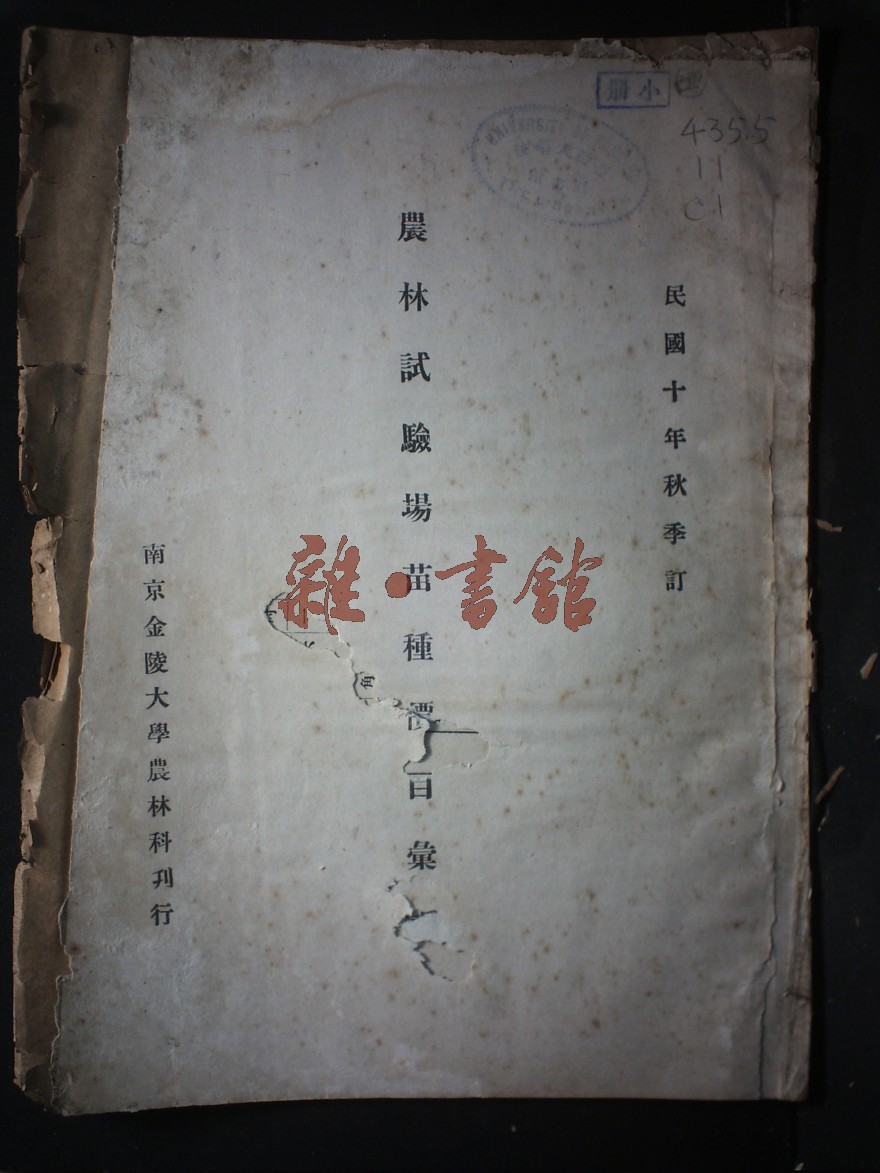 小冊
435.5
11
C.1
民國十年秋季訂
農林試驗場苗種價目彙
南京金陵大學農林科刊行
雜·書館
UNIVERSITY OF